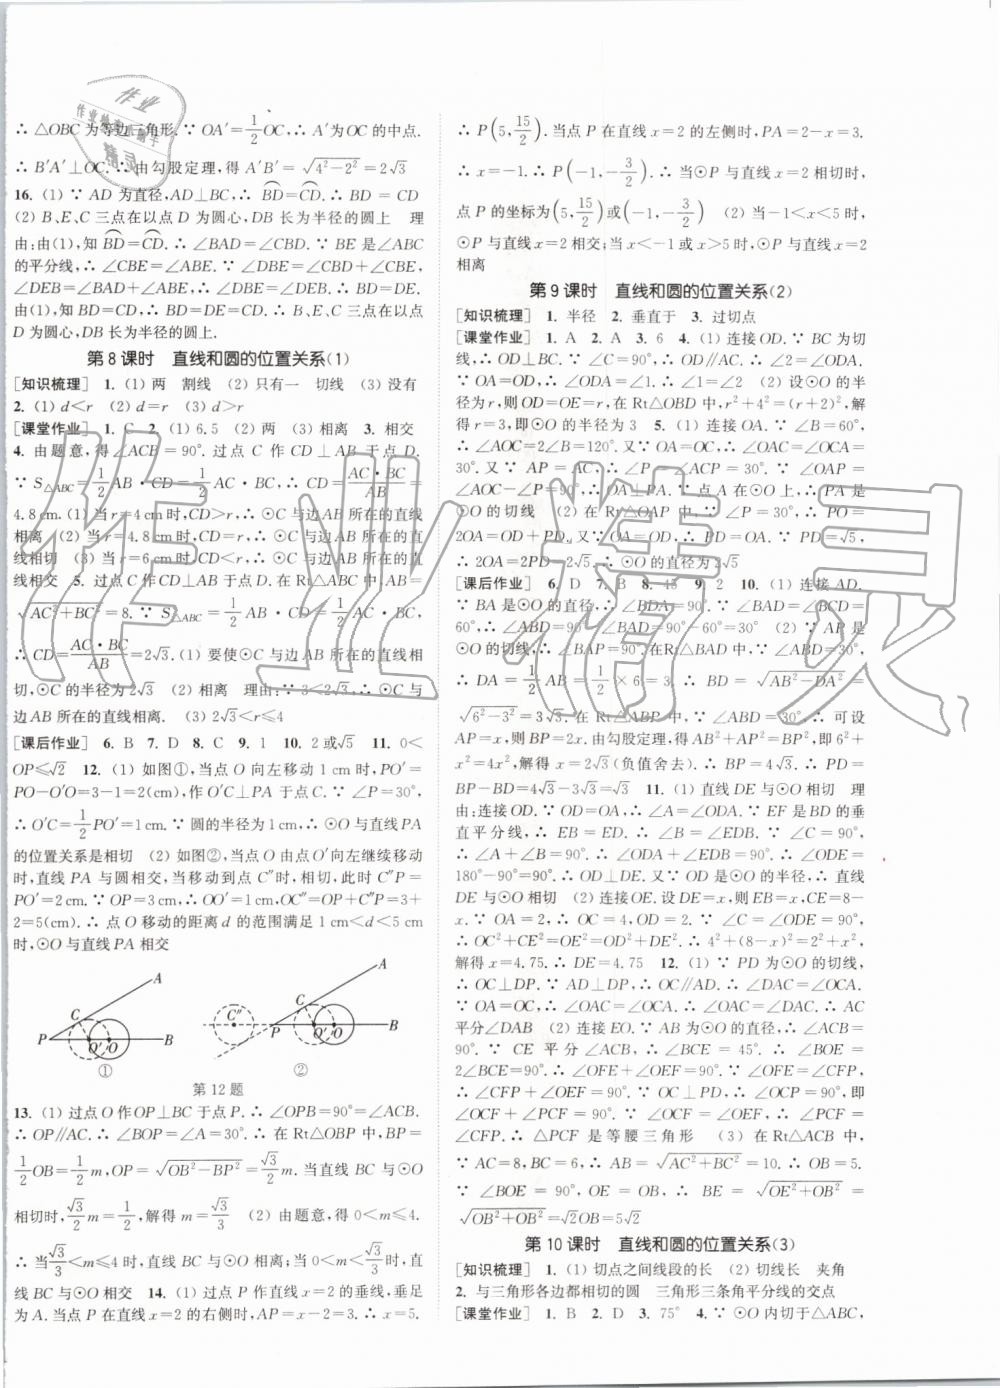 ∴ △OBC 为等边三角形.∵ OA′=1/2 OC,∴ A′为OC 的中点.
∴ B′A′⊥OC.∴ 由勾股定理,得 A′B′=√(4²−2²)=2√3
16. (1) ∵ AD 为直径,AD⊥BC,∴ BD=CD.∴ BD = CD
(2) B、E、C 三点在以点 D 为圆心,DB 长为半径的圆上 理
由:由(1),知 BD=CD.∴ ∠BAD=∠CBD.∵ BE 是∠ABC
的平分线,∴ ∠CBE=∠ABE.∵ ∠DBE=∠CBD+∠CBE,
∠DEB=∠BAD+∠ABE,∴ ∠DBE=∠DEB.∴ BD=DE.
由(1),知 BD=CD,∴ BD=DE=CD.∴ B、E、C 三点在以点
D 为圆心,DB 长为半径的圆上.
第 8 课时 直线和圆的位置关系(1)
[知识梳理] 1. (1) 两 割线 (2) 只有一 切线 (3) 没有
2. (1) d<r (2) d=r (3) d>r
[课堂作业] 1. C 2. (1) 6.5 (2) 两 (3) 相离 3. 相交
4. 由题意,得∠ACB = 90°.过点 C 作 CD⊥AB 于点 D.
∵ S△ABC=1/2 AB·CD=1/2 AC·BC,∴ CD=AC·BC/AB=
4.8 cm. (1) 当 r=4 cm 时,CD>r,∴ ⊙C 与边 AB 所在的直线
相离 (2) 当 r=4.8 cm 时,CD=r,∴ ⊙C 与边 AB 所在的直
线相切 (3) 当 r=6 cm 时,CD<r,∴ ⊙C 与边 AB 所在的直
线相交 5. 过点 C 作 CD⊥AB 于点 D.在 Rt△ABC 中,AB=
√(AC²+BC²)=8.∵ S△ABC=1/2 AB·CD=1/2 AC·BC,
∴ CD=AC·BC/AB=2√3. (1) 要使⊙C 与边 AB 所在的直线相
切,⊙C 的半径为 2√3 (2) 相离 理由:∵ 3<2√3,∴ ⊙C 与
边 AB 所在的直线相离. (3) 2√3<r≤4
[课后作业] 6. B 7. D 8. C 9. 1 10. 2 或√5 11. 0<
OP≤√2 12. (1) 如图①,当点 O 向左移动 1 cm 时,PO′=
PO−O′O=3−1=2(cm),作 O′C⊥PA 于点 C.∵ ∠P=30°,
∴ O′C=1/2 PO′=1 cm.∵ 圆的半径为 1 cm,∴ ⊙O 与直线 PA
的位置关系是相切 (2) 如图②,当点 O 由点 O′向左继续移动
时,直线 PA 与圆相交,当移动到点 C″时,相切,此时 C″P=
PO′=2 cm.∵ OP=3 cm,∴ OO′=1 cm,OC″=OP+C″P=3+
2=5(cm).∴ 点 O 移动的距离 d 的范围满足 1 cm<d<5 cm
时,⊙O 与直线 PA 相交
A
C
P
O′ O
B
①
A
C″
C
P
O′ O
B
②
第 12 题
13. (1) 过点 O 作 OP⊥BC 于点 P.∴ ∠OPB=90°=∠ACB.
∴ OP∥AC.∴ ∠BOP=∠A=30°.∴ 在 Rt△OBP 中,BP=
1/2 OB=1/2 m,OP=√(OB²−BP²)=√3/2 m.当直线 BC 与⊙O
相切时,√3/2 m=1/2,解得 m=√3/3 (2) 由题意,得 0<m≤4.
∴ 当√3/3<m≤4 时,直线 BC 与⊙O 相离;当 0<m<√3/3时,直
线 BC 与⊙O 相交 14. (1) 过点 P 作直线 x=2 的垂线,垂足
为 A.当点 P 在直线 x=2 的右侧时,AP=x−2=3.∴ x=5.
∴ P(5,15/2).当点 P 在直线 x=2 的左侧时,PA=2−x=3.
∴ x=−1.∴ P(−1,−3/2).∴ 当⊙P 与直线 x=2 相切时,
点 P 的坐标为(5,15/2)或(−1,−3/2) (2) 当−1<x<5 时,
⊙P 与直线 x=2 相交;当 x<−1 或 x>5 时,⊙P 与直线 x=2
相离
第 9 课时 直线和圆的位置关系(2)
[知识梳理] 1. 半径 2. 垂直于 3. 过切点
[课堂作业] 1. A 2. A 3. 6 4. (1) 连接 OD.∵ BC 为切
线,∴ OD⊥BC.∵ ∠C=90°,∴ OD∥AC.∴ ∠2=∠ODA.
∵ OA=OD,∴ ∠ODA=∠1.∴ ∠1=∠2 (2) 设⊙O 的半
径为 r,则 OD=OE=r,在 Rt△OBD 中,r²+4²=(r+2)²,解
得 r=3,即⊙O 的半径为 3 5. (1) 连接 OA.∵ ∠B=60°,
∴ ∠AOC=2∠B=120°.又∵ OA=OC,∴ ∠OAC=∠OCA=
30°.又∵ AP = AC,∴ ∠P = ∠ACP = 30°.∵ ∠OAP =
∠AOC−∠P=90°,∴ OA⊥PA.∵ 点 A 在⊙O 上,∴ PA 是
⊙O 的切线 (2) 在 Rt△OAP 中,∵ ∠P = 30°,∴ PO =
2OA=OD+PD.又∵ OA=OD,∴ PD=OA.∵ PD=√5,
∴ 2OA=2PD=2√5.∴ ⊙O 的直径为 2√5
[课后作业] 6. D 7. B 8. 45 9. 2 10. (1) 连接 AD.
∵ BA 是⊙O 的直径,∴ ∠BDA = 90°.∵ ∠BAD =∠BCD=
60°,∴ ∠ABD=90°−∠BAD=90°−60°=30° (2) ∵ AP 是
⊙O 的切线,∴ ∠BAP=90°.在Rt△BAD 中,∵ ∠ABD=30°,
∴ DA = 1/2 AB = 1/2 × 6 = 3.∴ BD = √(AB²−DA²) =
√(6²−3²)=3√3.在 Rt△ABP 中,∵ ∠ABD=30°,∴ 可设
AP=x,则 BP=2x.由勾股定理,得 AB²+AP²=BP²,即 6²+
x²=4x²,解得 x=2√3 (负值舍去).∴ BP=4√3.∴ PD=
BP−BD=4√3−3√3=√3 11. (1) 直线 DE 与⊙O 相切 理
由:连接 OD.∵ OD=OA,∴ ∠A=∠ODA.∵ EF 是 BD 的垂
直平分线,∴ EB = ED.∴ ∠B = ∠EDB.∵ ∠C = 90°,
∴ ∠A + ∠B = 90°.∴ ∠ODA + ∠EDB = 90°.∴ ∠ODE =
180°−90°=90°.∴ OD⊥DE.又∵ OD 是⊙O 的半径,∴ 直线
DE 与⊙O 相切 (2) 连接 OE.设 DE=x,则 EB=x,CE=8−
x.∵ OA = 2,∴ OC = 4,OD = 2.∵ ∠C = ∠ODE = 90°,
∴ OC²+CE²=OE²=OD²+DE².∴ 4²+(8−x)²=2²+x²,
解得 x=4.75.∴ DE=4.75 12. (1) ∵ PD 为⊙O 的切线,
∴ OC⊥DP.∵ AD⊥DP,∴ OC∥AD.∴ ∠DAC=∠OCA.
∵ OA=OC,∴ ∠OAC=∠OCA.∴ ∠OAC=∠DAC.∴ AC
平分∠DAB (2) 连接 EO.∵ AB 为⊙O 的直径,∴ ∠ACB=
90°.∵ CE 平分∠ACB,∴ ∠BCE = 45°.∴ ∠BOE =
2∠BCE=90°.∴ ∠OFE+∠OEF=90°.∵ ∠OFE=∠CFP,
∴ ∠CFP + ∠OEF = 90°.∵ OC⊥PD,∴ ∠OCP = 90°,即
∠OCF +∠PCF = 90°.∵ ∠OCF = ∠OEF,∴ ∠PCF =
∠CFP.∴ △PCF 是等腰三角形 (3) 在 Rt△ACB 中,
∵ AC=8,BC=6,∴ AB=√(AC²+BC²)=10.∴ OB=5.
∵ ∠BOE = 90°,OE = OB,∴ BE = √(OE²+OB²) =
√(OB²+OB²)=√2OB=5√2
第 10 课时 直线和圆的位置关系(3)
[知识梳理] 1. (1) 切点之间线段的长 (2) 切线长 夹角
2. 与三角形各边都相切的圆 三角形三条角平分线的交点
[课堂作业] 1. B 2. D 3. 75° 4. ∵ ⊙O 内切于△ABC,
作业精灵